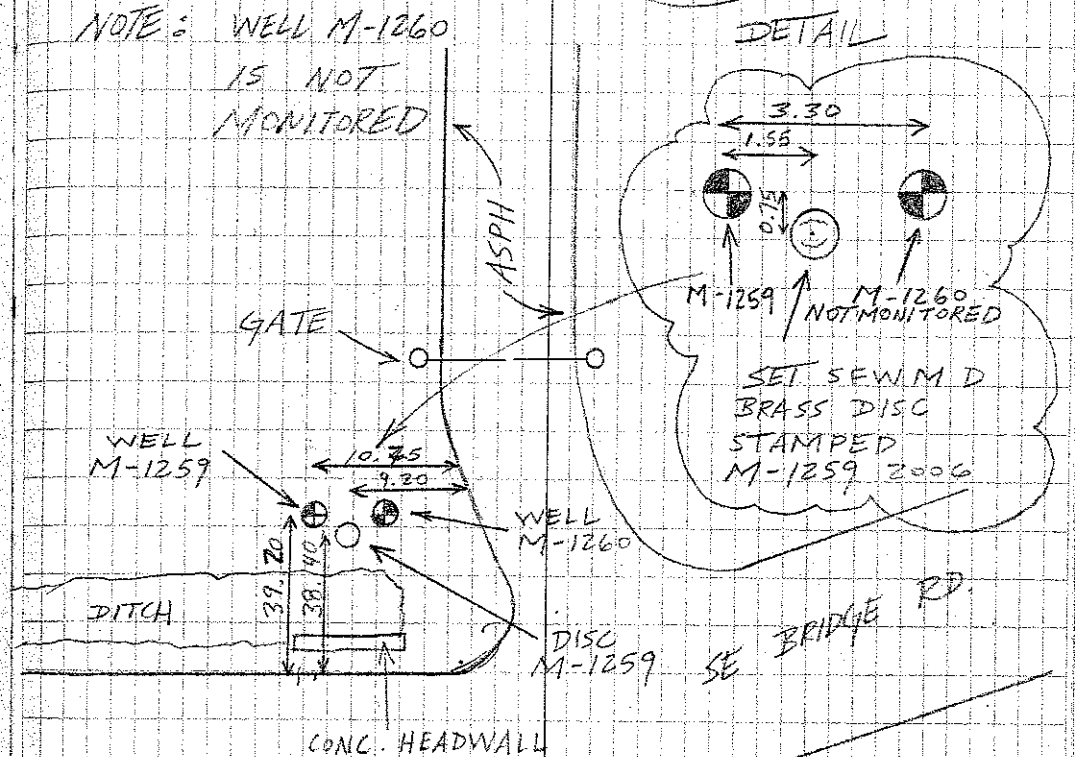 NOTE: WELL M-1260
IS NOT
MONITORED
DETAIL
3.30
1.55
0.75
ASPH
M-1259
M-1260
NOT MONITORED
GATE
SET SFWMD
BRASS DISC
STAMPED
M-1259 2006
WELL
M-1259
10.75
9.20
WELL
M-1260
39.20
38.40
DITCH
DISC
M-1259
SE BRIDGE RD.
CONC. HEADWALL